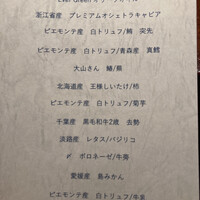 Ever Green オリーブオイル
浙江省産 プレミアムオシェトラキャビア
ピエモンテ産 白トリュフ/鮪 突先
ピエモンテ産 白トリュフ/青森産 真鱈
大山さん 鰆/蕪
北海道産 王様しいたけ/柿
ピエモンテ産 白トリュフ/菊芋
千葉産 黒毛和牛2歳 去勢
淡路産 レタス/バジリコ
〃 ボロネーゼ/牛蒡
愛媛産 島みかん
ピエモンテ産 白トリュフ/牛乳